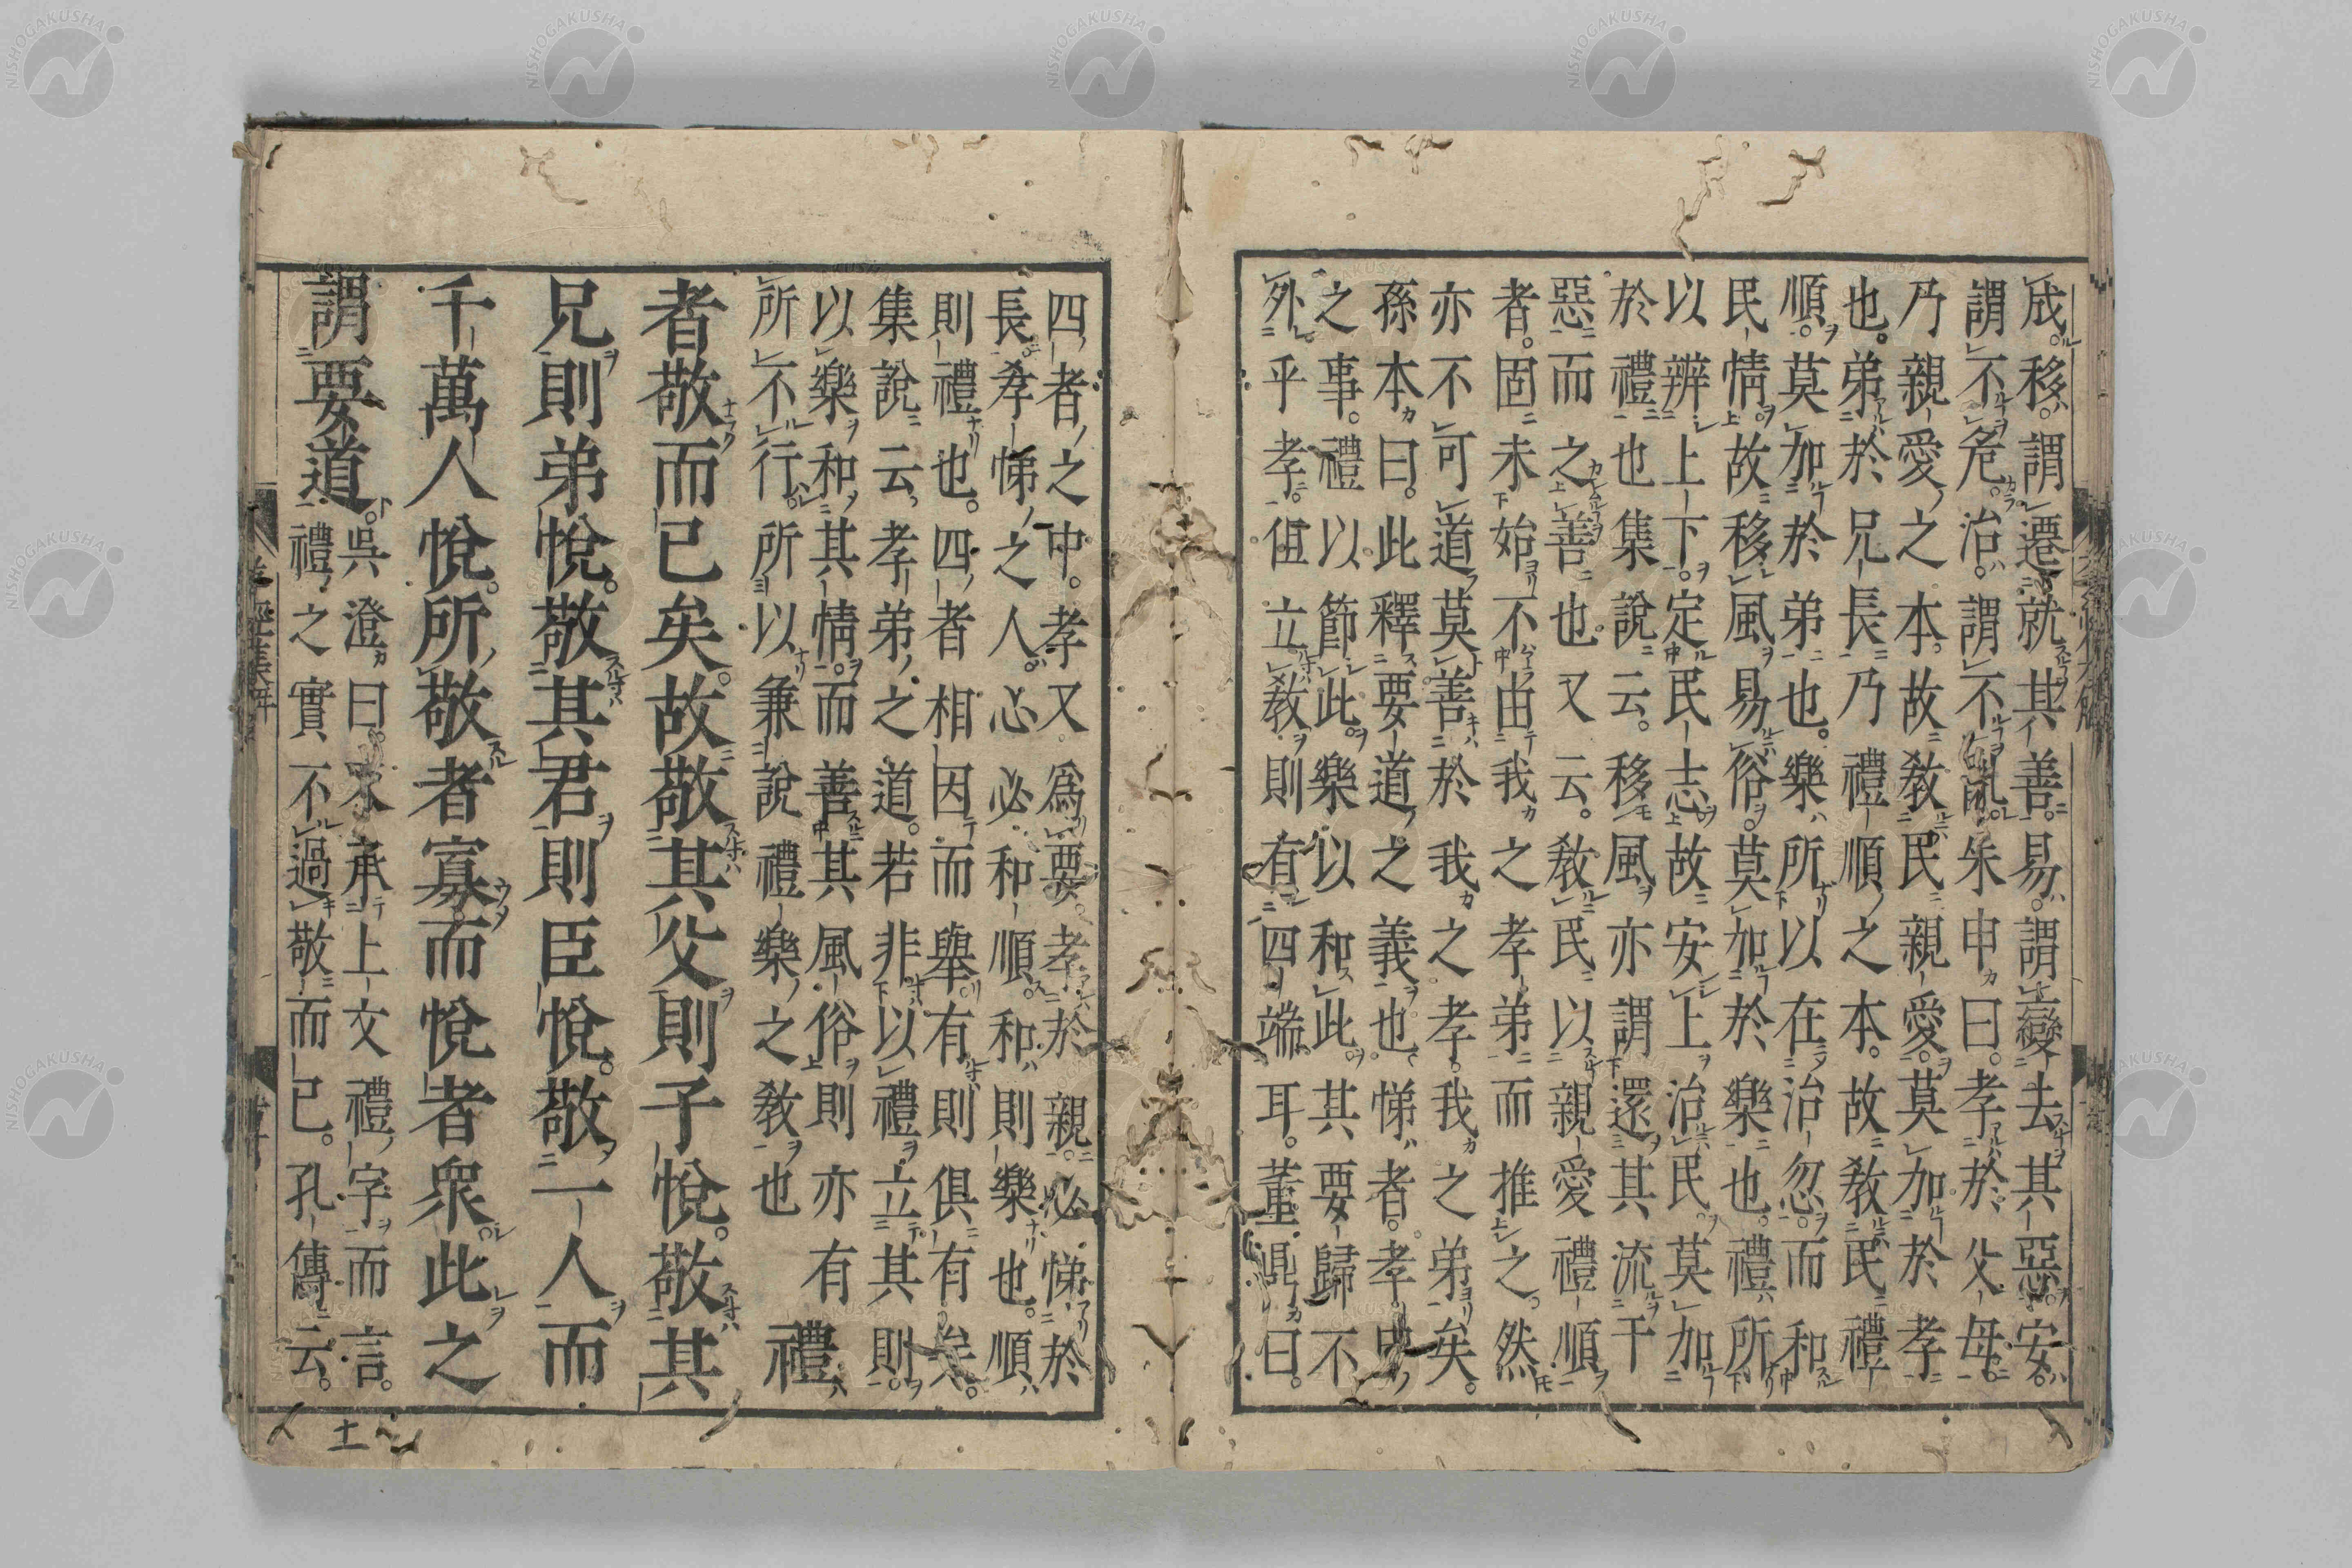 成移謂遷就其善易謂變去其惡安
謂不危治謂不亂朱申曰孝於父母
乃親愛之本故教民親愛莫加於孝
也弟於兄長乃禮順之本故教民禮
順莫加於弟也樂所以在治忽而和
民情故移風易俗莫加於樂也禮所
以辨上下定民志故安上治民莫加
於禮也集說云移風亦謂還其流于
惡而之善也又云教民以親愛禮順
者固未始不由我之孝弟而推之然
亦不可道莫善於我之孝我之弟矣
孫本曰此釋要道之義也悌者孝中
之事禮以節此樂以和此其要歸不
外乎孝但立教則有四端耳董鼎曰
四者之中孝又為要孝於親必悌於
長孝悌之人心必和順和則樂也順
則禮也四者相因而舉有則俱有矣
集說云孝弟之道若非以禮立其則
以樂和其情而善其風俗則亦有
所不行所以兼說禮樂之教也
禮
者敬而已矣故敬其父則子悅敬其
兄則弟悅敬其君則臣悅敬一人而
千萬人悅所敬者寡而悅者衆此之
謂要道
吳澄曰承上文禮字而言
禮之實不過敬而已孔傳云
孝經集
NISHOGAKUSHA